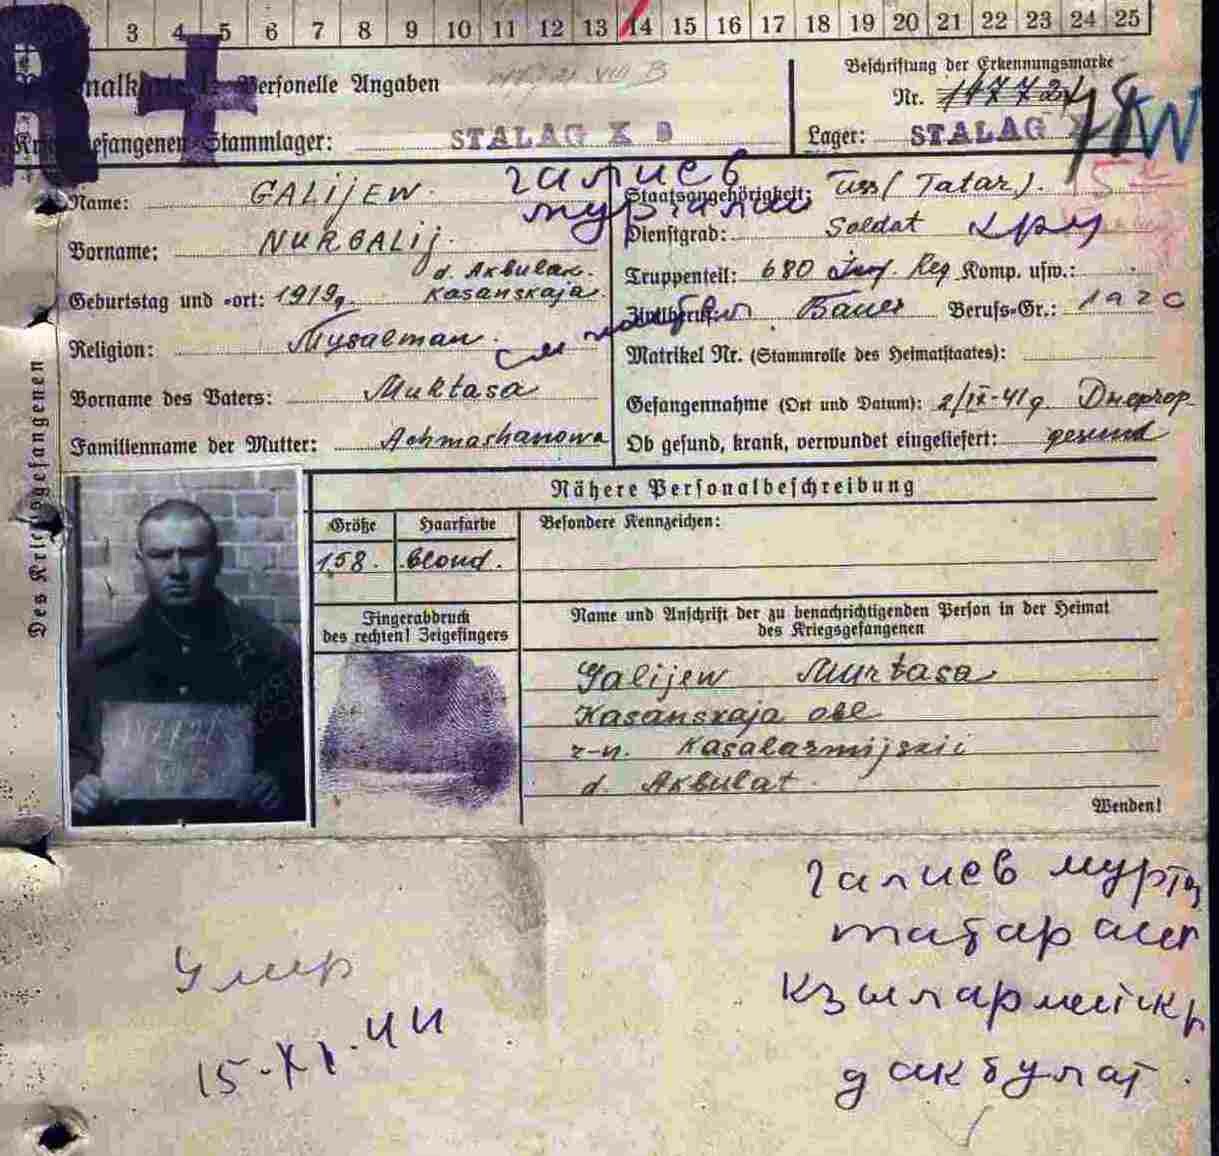 3 4 5 6 7 8 9 10 11 12 13 14 15 16 17 18 19 20 21 22 23 24 25
Personelle Angaben
Beschriftung der Erkennungsmarke
Nr.
Kriegsgefangenen-Stammlager: STALAG X B
Lager: STALAG
KW
Name: GALIJEW.
галиев
Staatsangehörigkeit: Uss (Tatar).
Vorname: NURGALIJ.
Dienstgrad: Soldat
Geburtstag und -ort: 1919g. d. Akbulak. Kasanskaja
Truppenteil: 680 Inf. Reg Komp. usw.:
Zivilberuf: Bauer Berufs-Gr.: 1920
Religion: Musalman.
Matrikel Nr. (Stammrolle des Heimatstaates):
Vorname des Vaters: Muktasa
Gefangennahme (Ort und Datum): 2/IX-41g.
Familienname der Mutter: Achmashanowa
Ob gesund, krank, verwundet eingeliefert: gesund
Des Kriegsgefangenen
Nähere Personalbeschreibung
Größe Haarfarbe Besondere Kennzeichen:
158. blond.
Fingerabdruck
des rechten! Zeigefingers
Name und Anschrift der zu benachrichtigenden Person in der Heimat
des Kriegsgefangenen
Galijew Murtasa
Kasanskaja obl
r-n. Kasalarmijskii
d. Akbulat.
Wenden!
галиев
татар
д акбулат.
Умер
15-XI.44